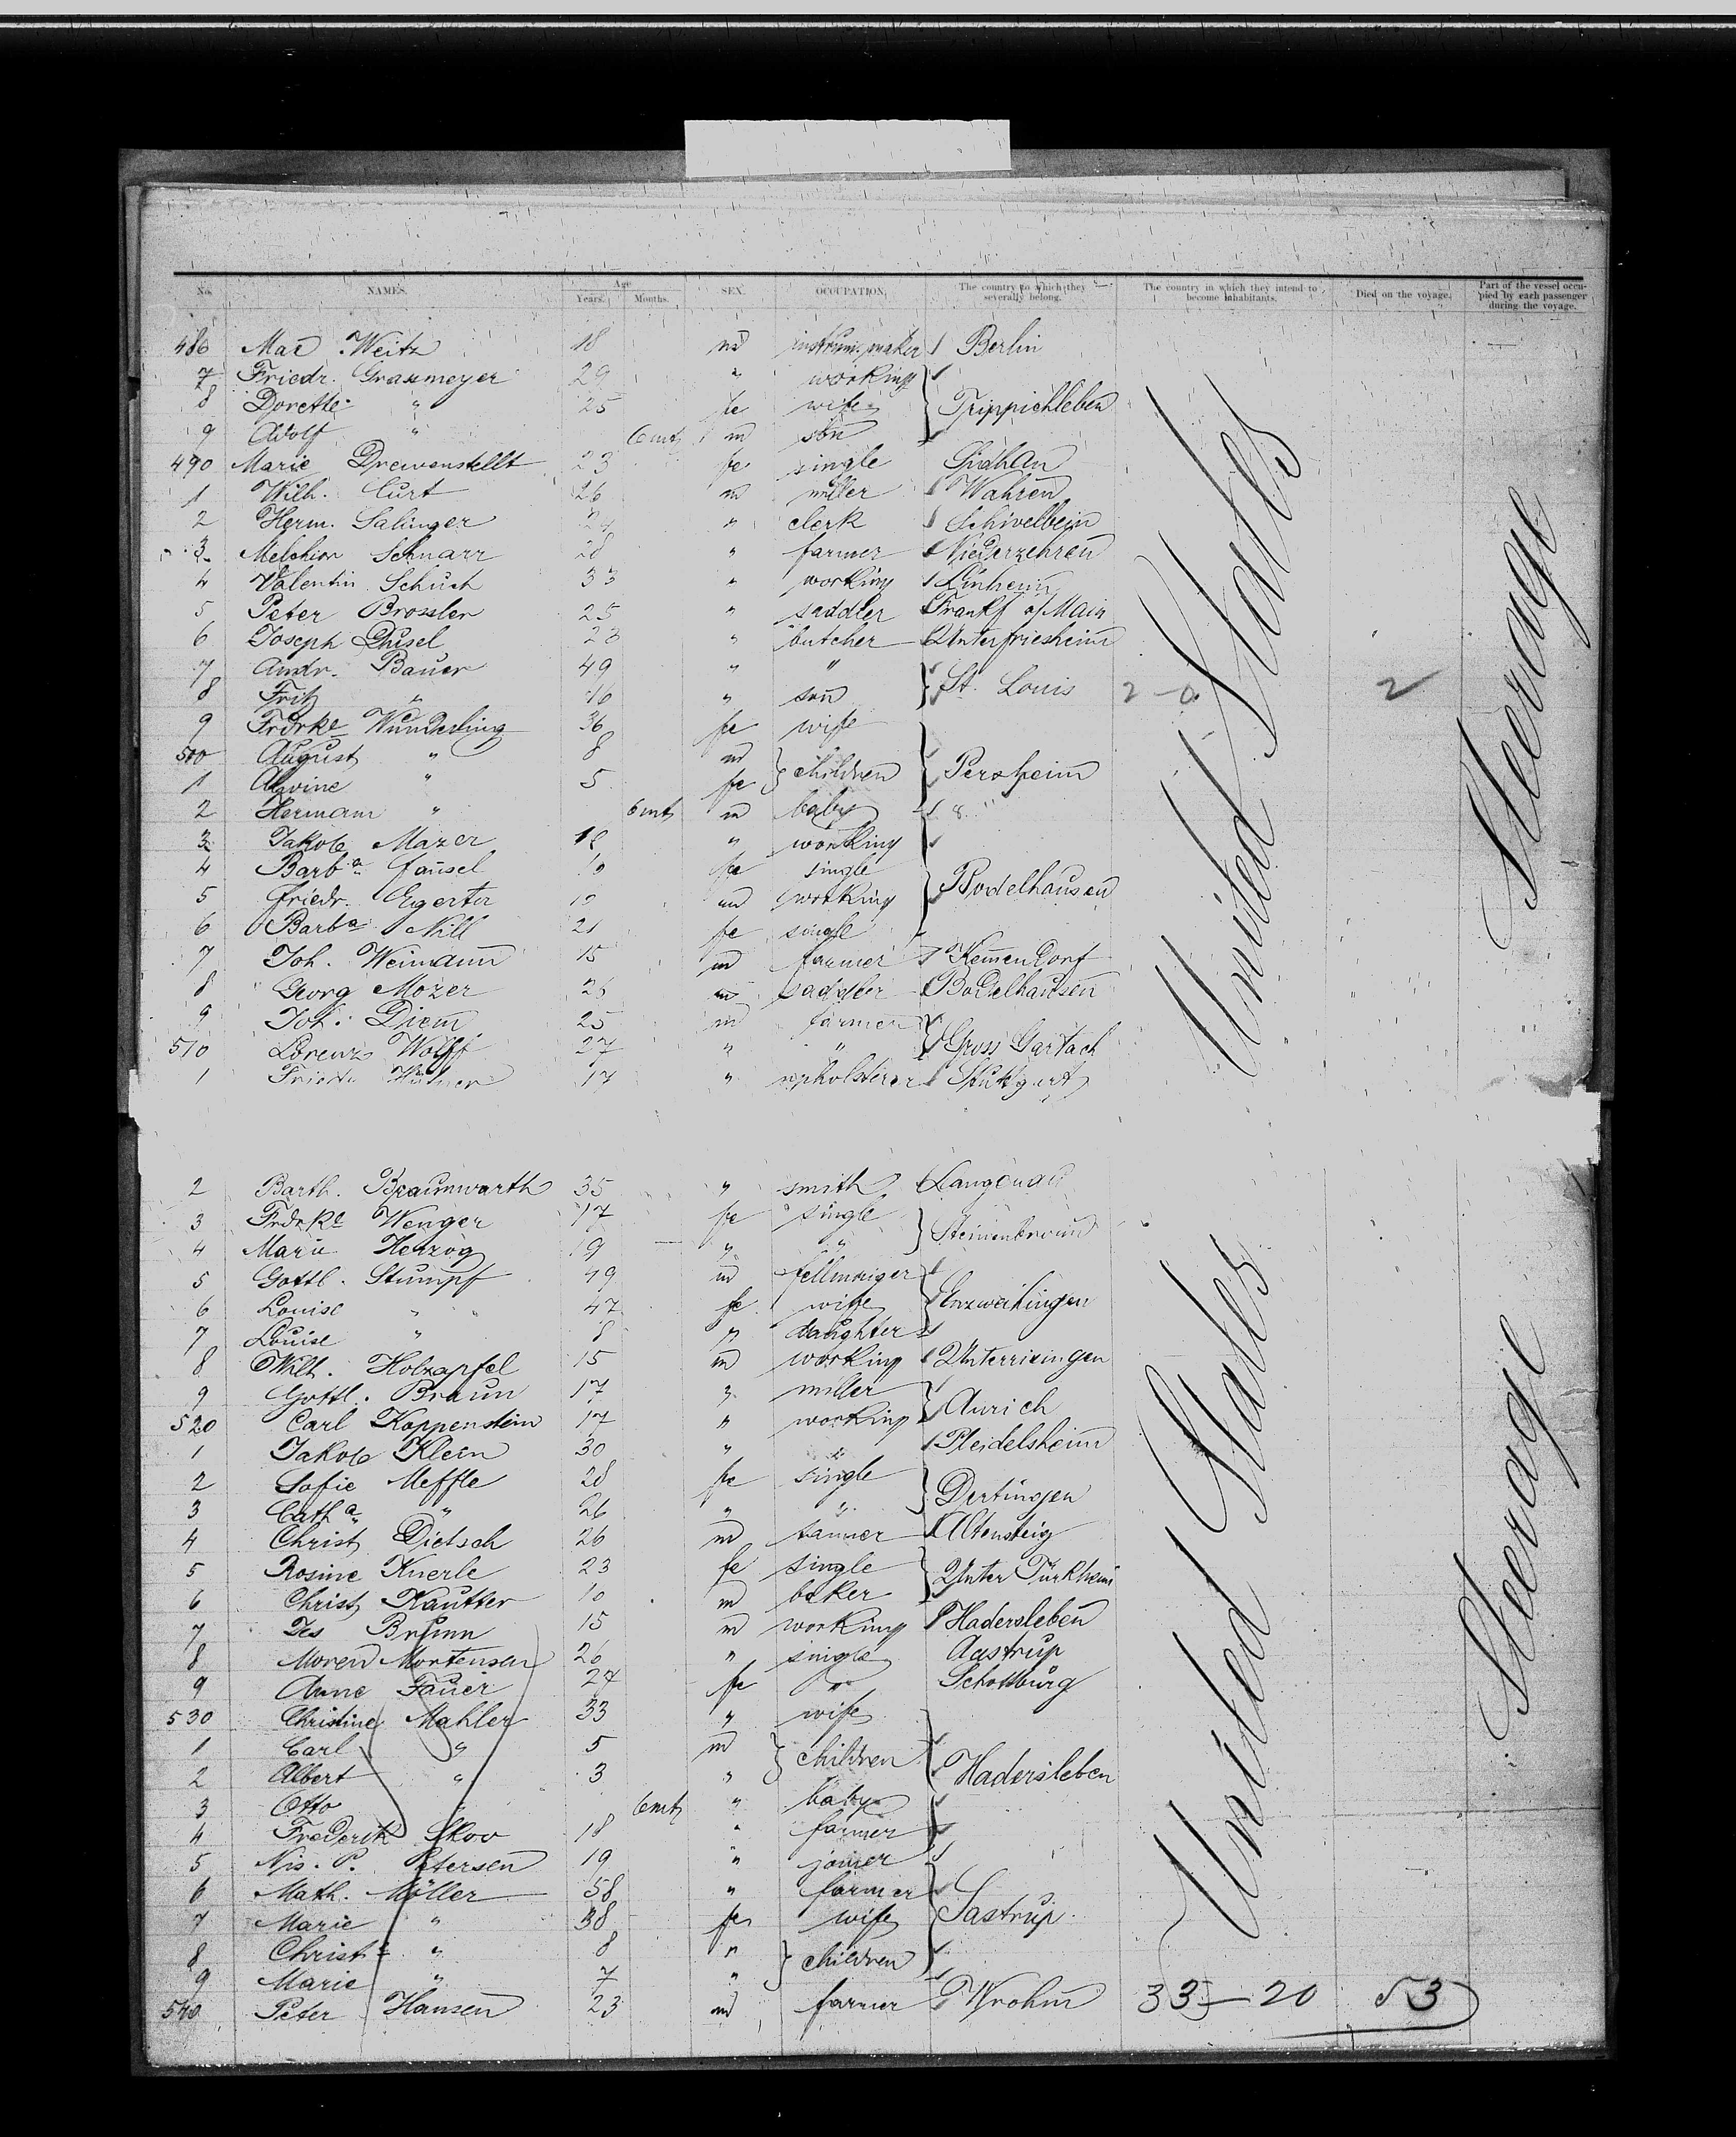 No. NAMES. Age Years. Months. SEX. OCCUPATION. The country to which they severally belong. The country in which they intend to become inhabitants. Died on the voyage. Part of the vessel occupied by each passenger during the voyage.
486 Max Weitz 18 m instrum. maker Berlin
7 Friedr. Grasmeyer 29 " working
8 Dorette " 25 fe wife Trippichleben
9 Adolf " 6 mts m son
490 Marie Drewenstellt 23 fe single
1 Wilh. Curt 26 m miller Wahren
2 Herm. Salinger 24 " clerk Schivelbein
3 Melchior Schnarr 28 " farmer Niederzehren
4 Valentin Schuch 33 " working Linheim
5 Peter Brossler 25 " saddler Frankf a/Main
6 Joseph 23 " butcher Unterfriesheim
7 Andr. Bauer 49 " "
8 Fritz " 10 " son St. Louis 2-0 2
9 Frdrke Wunderling 36 fe wife
500 August " 8 m children
1 Alwine " 5 fe
2 Hermann " 6 mts m baby "
3 Jakob Mazer 18 " working
4 Barba fausel 10 fe single
5 Friedr. Egerter 10 m working Bodelhausen
6 Barba Nill 21 fe single
7 Joh. Weimann 15 m farmer Kemendorf
8 Georg Mozer 26 m saddler Bodelhausen
9 Joh. Diem 25 m farmer
510 Lorenz Wolff 27 " " Gross Gartach
1 17 " upholsterer Stuttgart
United States
Steerage
2 Barth. Braunwarth 35 " smith Langenau
3 Frdrke Wenger 17 fe single
4 Marie Herzog 19 " " Steinenbronn
5 Gottl. Stumpf 49 m
6 Louise " 47 fe wife Enzweihingen
7 Louise " 8 " daughter
8 Wilh. Holzapfel 15 m working Unterrixingen
9 Gottl. Braun 17 " miller
520 Carl Koppenstein 17 " working Aurich
1 Jakob Klein 30 " " Pleidelsheim
2 Sofie Meffle 28 fe single
3 Catha " 26 " " Dertingen
4 Christ Dietsch 26 m tanner Altensteig
5 Rosine Knerle 23 fe single
6 Christ Kautter 10 m baker Unter Türkheim
7 Jes Bruhn 15 m working Hadersleben
8 Moren Mortensen 26 " single Aastrup
9 Anne Fauer 27 fe " Schottburg
530 Christine Mahler 33 " wife
1 Carl " 5 m children
2 Albert " 3 " Hadersleben
3 Otto 6 mts " baby
4 Frederik Skov 18 " farmer
5 Nis. P. Petersen 19 " joiner
6 Math. Möller 58 " farmer
7 Marie " 38 fe wife Sastrup
8 Christe " 8 " children
9 Marie " 7 "
540 Peter Hansen 23 m farmer Wrohm 33-20 53
United States
Steerage